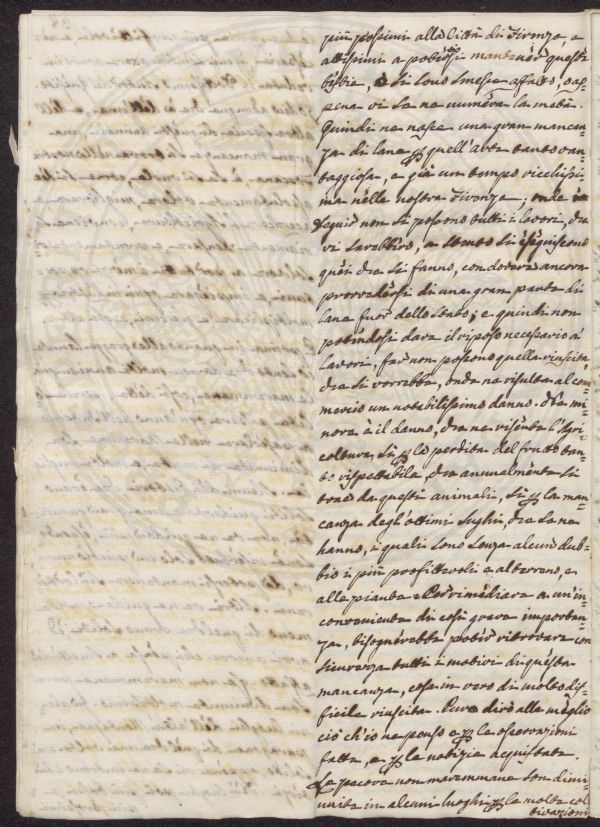 più possimi alla Città di Firenze, e
attissimi a potervisi mantener queste
bestie, si sono smesse affatto, e ap=
pena vi se ne numera la metà.
Quindi ne nasce una gran mancan=
za di lane p quell'arte tanto van=
taggiosa, e già un tempo ricchissi=
ma nella nostra Firenze; onde in
seguito non si possono tutti i lavori, che
vi sarebbero, e stento si eseguiscono
quei che si fanno, con dovere ancora
provvedersi di una gran parte di
lane fuor dello Stato; e quindi non
potendosi dare il riposo necessario a'
lavori, far non possono quella riuscita,
che si vorrebbe, onde ne risulta al com=
mercio un notabilissimo danno. Ne mi=
nore è il danno, che ne risente l'Agri=
coltura, si p la perdita del frutto tan=
to rispettabile, che annualmente si
trae da questi animali, si p la man=
canza degl'ottimi sughi, che se ne
hanno, i quali sono senza alcun dub=
bio i più profittevoli e al terreno, e
alle piante. Per rimediare a un in=
conveniente di così grave importan=
za, bisognerebbe poter ritrovare con
sicurezza tutti i motivi di questa
mancanza, cosa in vero di molto dif=
ficile riuscita. Pure dirò alla meglio
ciò ch'io ne penso e p le osservazioni
fatte, e p le notizie acquistate.
Le pecore non maremmane son dimi=
nuite in alcuni luoghi p le molte col
tivazioni